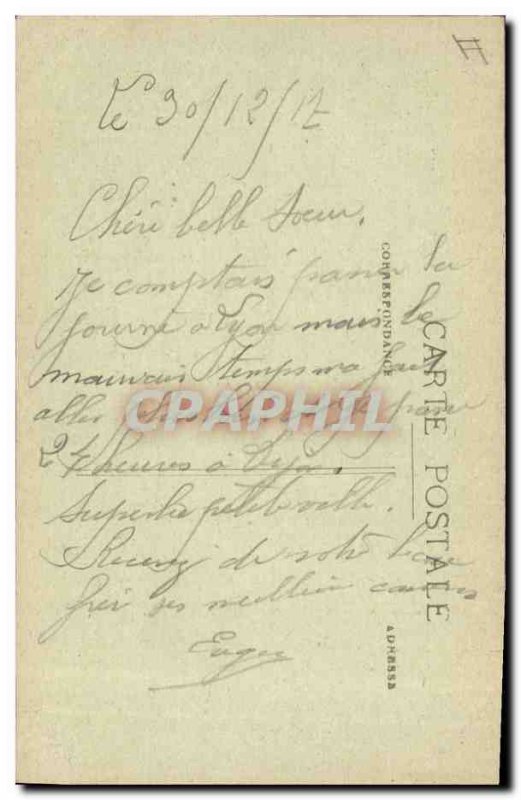 le 30/12/17
Chère belle Soeur.
Je comptais passer la
journé a Lyon mais le
mauvais temps ma fait
aller
24 heures à
Superbe petite ville.
Recevez de votre beau
frèr ses meilleur
CPAPHIL
CARTE POSTALE
CORRESPONDANCE
ADRESSE